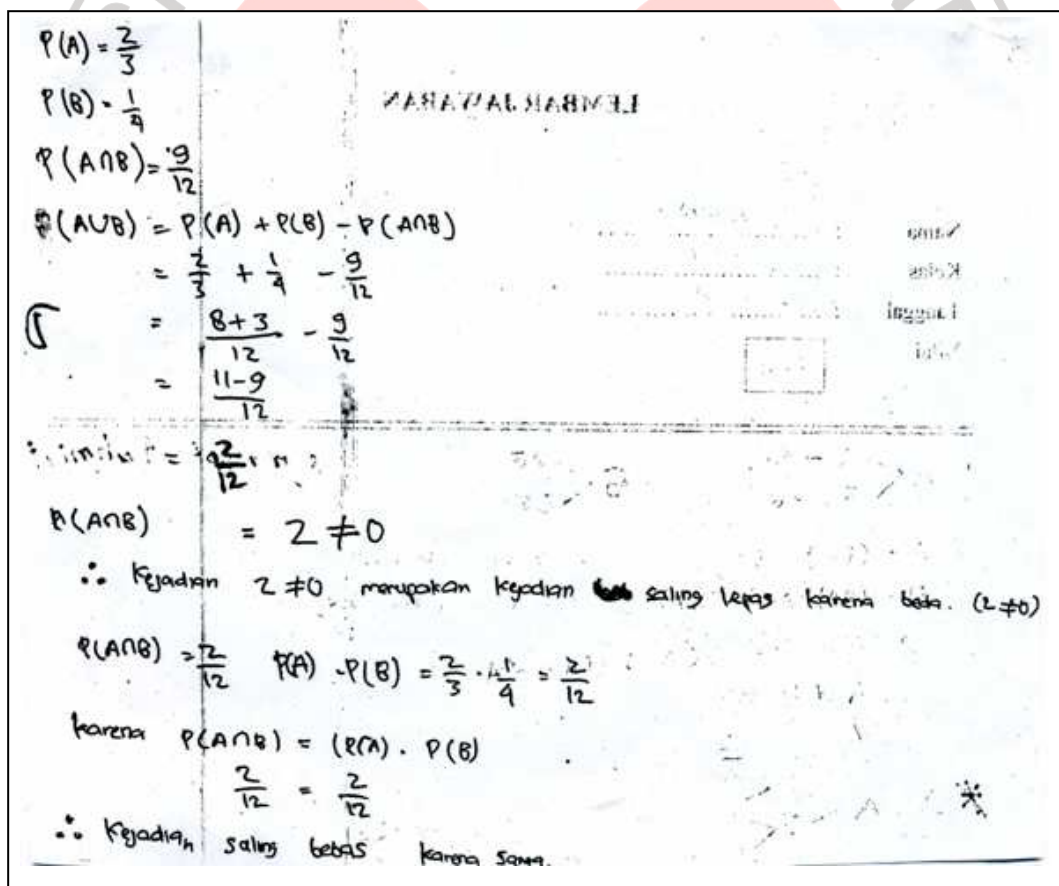 P(A) = 2/3
P(B) = 1/4
P(A∩B) = 9/12
P(A∪B) = P(A) + P(B) - P(A∩B)
= 2/3 + 1/4 - 9/12
= (8+3)/12 - 9/12
= (11-9)/12
= 2/12
P(A∩B) = 2 ≠ 0
∴ Kejadian 2 ≠ 0 merupakan kejadian saling lepas karena beda. (2 ≠ 0)
P(A∩B) = 2/12 P(A) . P(B) = 2/3 . 1/4 = 2/12
karena P(A∩B) = (P(A) . P(B)
2/12 = 2/12
∴ Kejadian saling bebas karena sama.
LEMBAR JAWABAN
Nama
Kelas
Tanggal
Nilai